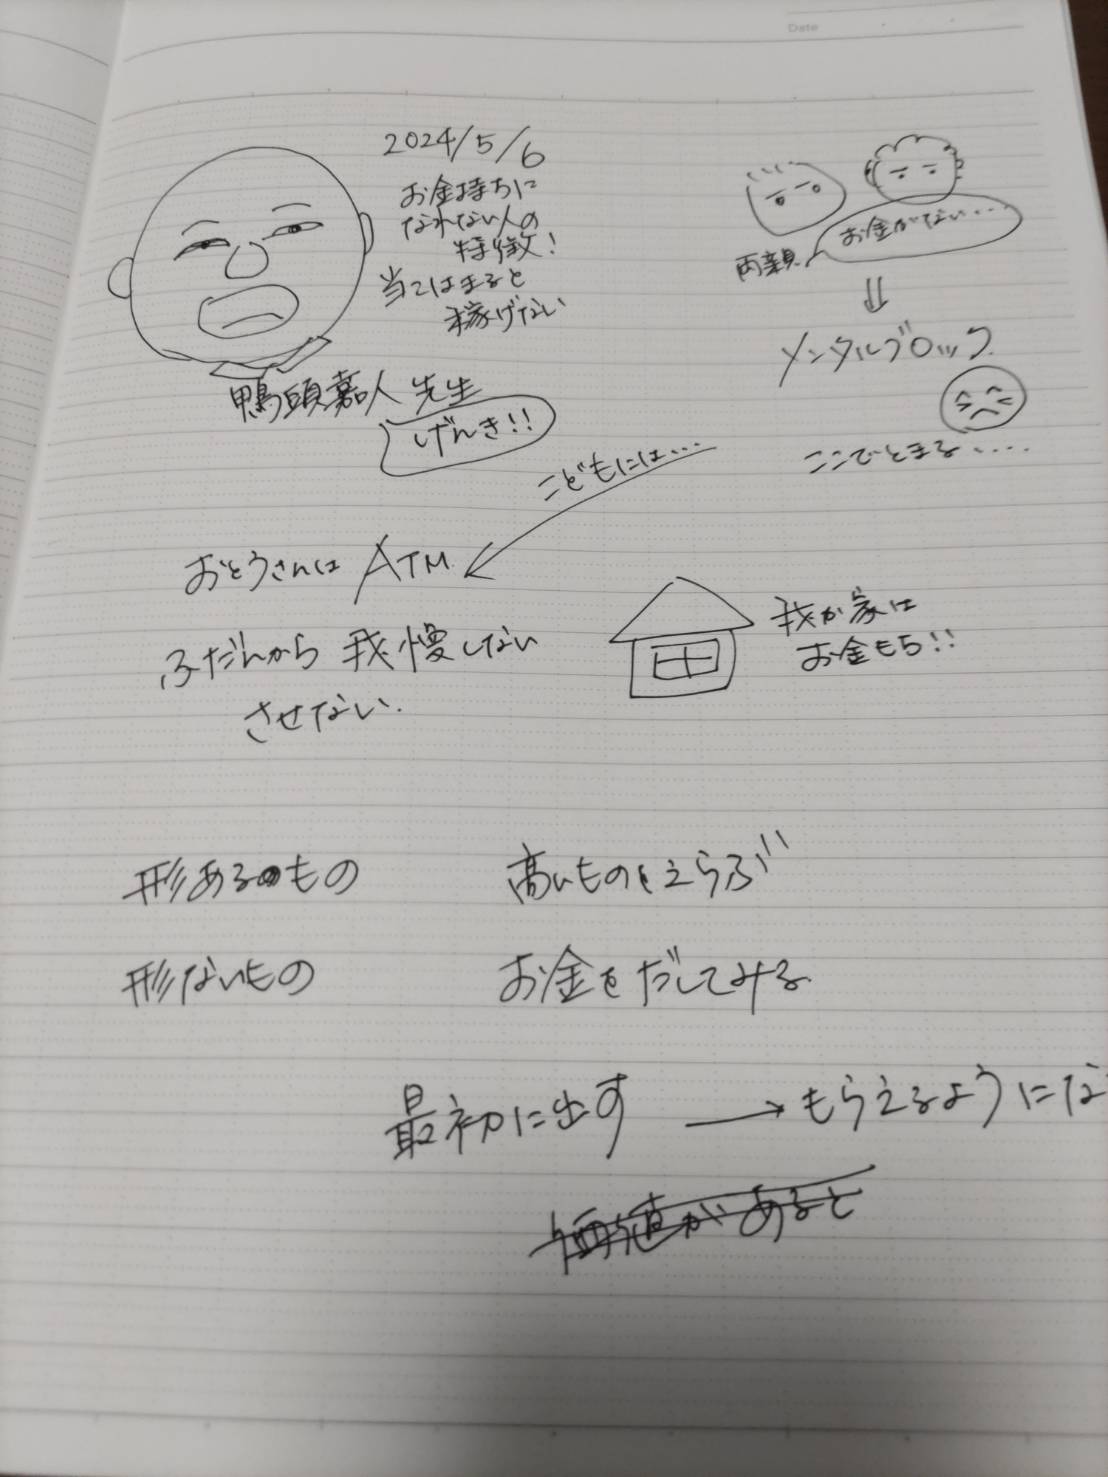 Date
2024/5/6
お金持ちに
なれない人の
特徴!
当てはまると
稼げない
鴨頭嘉人先生
げんき!!
お金がない...
両親
メンタルブロック
ここでとまる....
こどもには...
おとうさんはATM
ふだんから我慢しない
させない.
我が家は
お金もち!!
形あるもの 高いものをえらぶ
形ないもの お金をだしてみる
最初に出す → もらえるようにな
価値があると